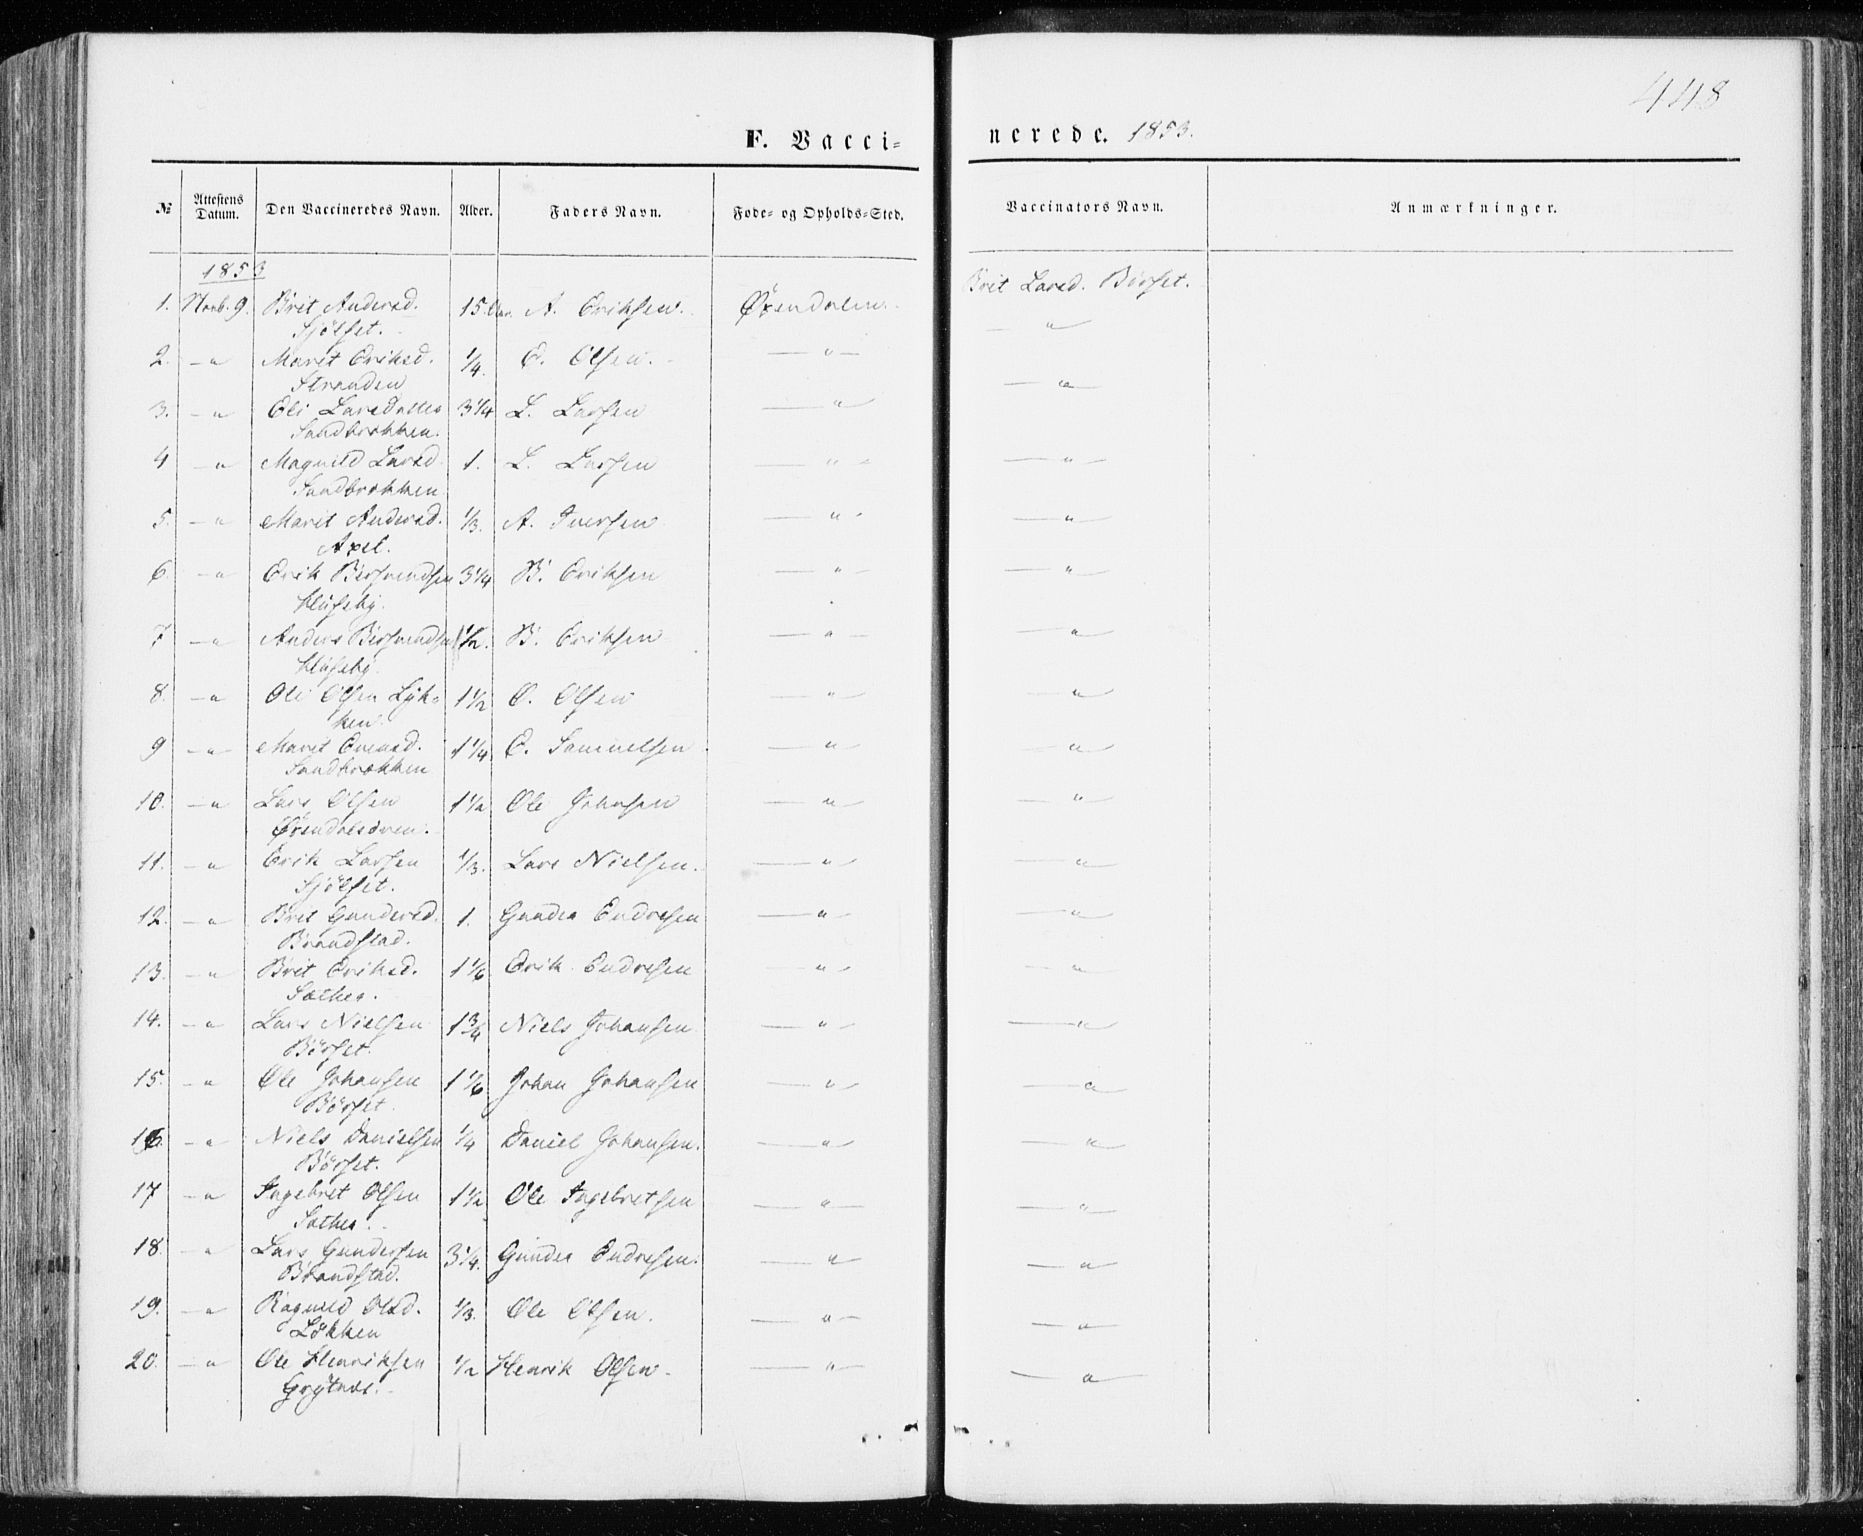 448
F. Vacci-
nerede. 1853.
№
Attestens Datum.
Den Vaccineredes Navn.
Alder.
Faders Navn.
Føde- og Opholds-Sted.
Vaccinators Navn.
Anmærkninger.
1853
1. Novb. 9. Brit Andersd. 15 A. Eriksen. Øxendalen. Brit Larsd. Børset.
Sjölset. — " —
2. — " Marit Eriksd. 1/4. E. Olsen. — " —
Stranden — " —
3. — " Oli Larsdatter 3 1/4 L. Larsen — " —
Sandbrækken.
4 — " Magnild Larsd. 1. L. Larsen — " — — " —
Sandbrækken
5. — " Marit Andersd. 1/3. A. Iversen — " — — " —
Axel.
6. — " Erik Bersvendsen 3 1/4 B. Eriksen — " — — " —
Husby.
7 — " Anders Bersvendsen 1/2. B. Eriksen — " — — " —
Husby.
8. — " Ole Olsen Lök- 1 1/2 O. Olsen — " — — " —
ken.
9 — " Marit Evensd. 1 1/4. E. Samuelsen — " — — " —
Sandbrækken
10. — " Lars Olsen 1 1/2 Ole Johnsen — " — — " —
Øxendalsören.
11. — " Erik Larsen 1/3. Lars Nielsen. — " — — " —
Sjölset.
12. — " Brit Gundersd. 1. Gunder Endresen — " — — " —
Brandstad.
13. — " Brit Eriksd. 1 1/6 Erik Endresen — " — — " —
Sæther.
14. — " Lars Nielsen 1 3/4 Niels Johansen — " — — " —
Börset.
15. — " Ole Johansen 1 1/6 Johan Johansen — " — — " —
Börset.
16. — " Niels Danielsen 1/4 Daniel Johansen. — " — — " —
Börset.
17 — " Ingebret Olsen 1 1/2 Ole Ingebretsen — " — — " —
Sæther.
18. — " Lars Gundersen 3 1/4. Gunder Endresen. — " — — " —
Brandstad.
19. — " Ragnild Olsd. 1/3. Ole Olsen. — " — — " —
Lökken
20. — " Ole Henriksen 1/2 Henrik Olsen. — " — — " —
Grytnes.